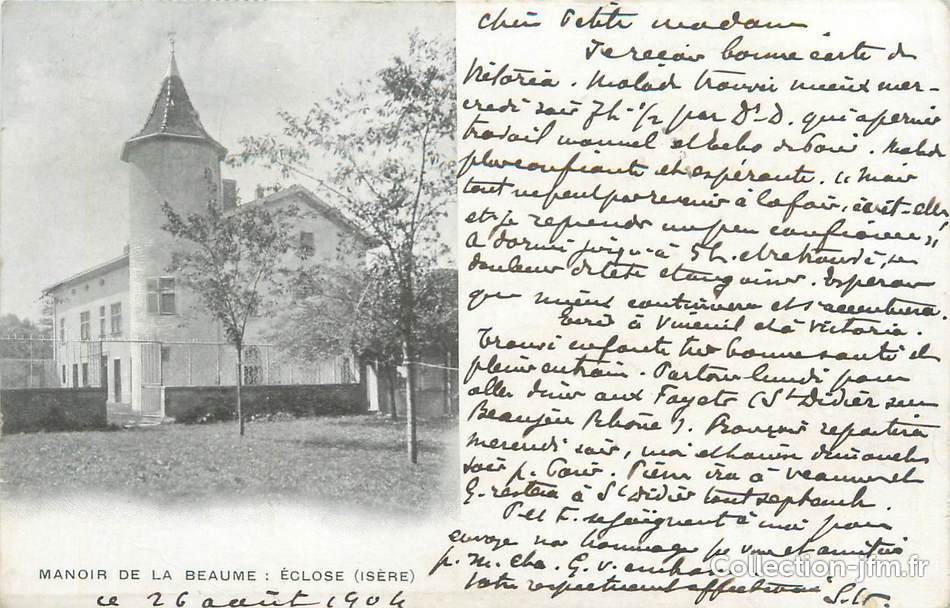 Chère Petite madame
Je reçois bonne carte de
Victoria. Malade trouvée mieux mer-
credi soir 7h-1/2 par Dr D. qui a permis
travail manuel et bébés dehors. Malade
plus confiante et espérante. "Mais
tout ne peut pas revenir à la fois, écrit-elle,
et je reprends un peu confiance"
A dormi jusqu'à 5h. et retrouvé,
douleur de tête et angoisse. Espérons
que mieux continuera et s'accentuera.
Écris à Vineuil et à Victoria.
Trouvé enfants très bonne santé et
plein entrain. Partons lundi pour
aller dîner aux Fayets (St Didier sur
Beaujeu Rhône). François repartira
mercredi soir, moi et dimanche
soir p. Paris. Pierre ira à et
G. restera à St Didier tout septembre.
P. et F. se joignent à moi pour
envoyer nos hommages p. vous et amitiés
p. M. Cha. G. v.
votre respectueusement affectionné S.
MANOIR DE LA BEAUME : ÉCLOSE (ISÈRE)
Le 26 août 1904
Collection-jfm.fr